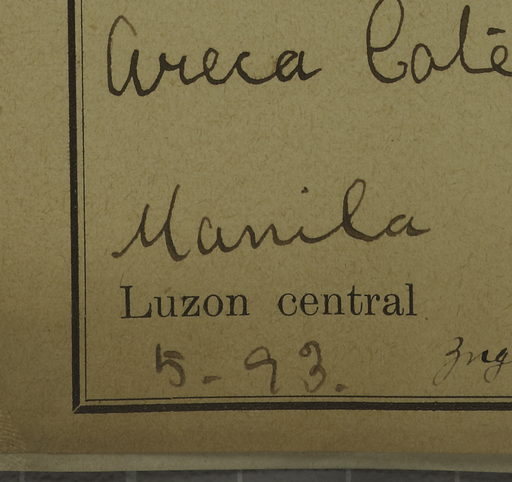 Areca Cate
Manila
Luzon central
5-93.